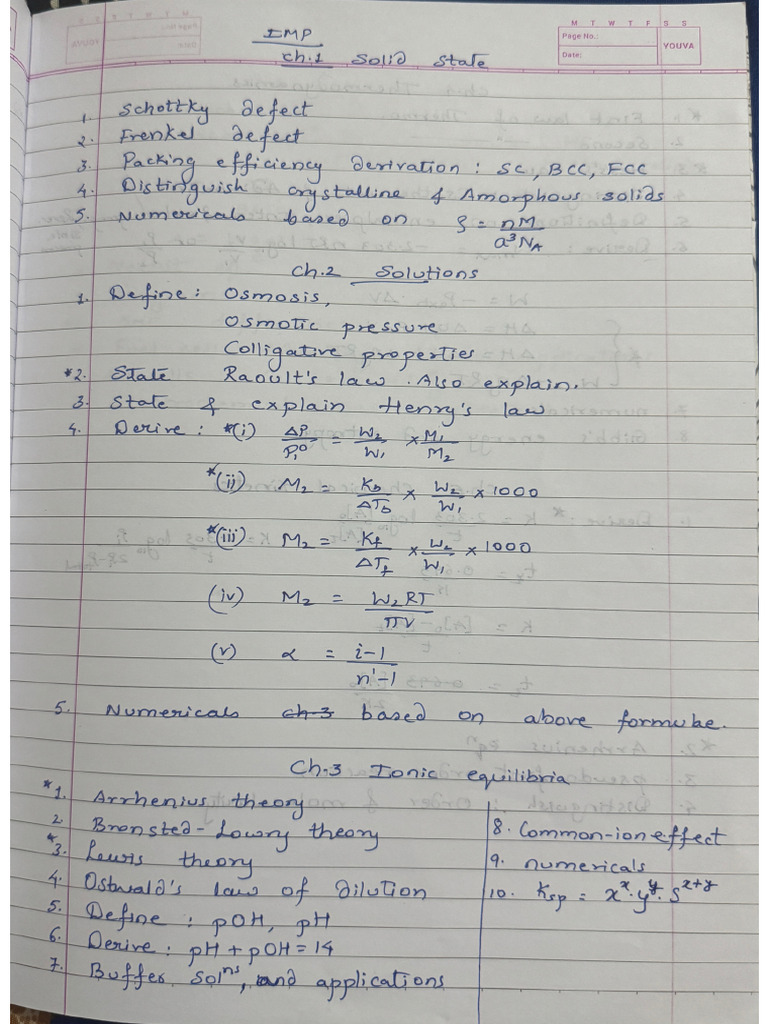 IMP
M T W T F S S
Page No.:
Date:
YOUVA
Ch.1 Solid State
1. Schottky defect
2. Frenkel defect
3. Packing efficiency derivation : SC, BCC, FCC
4. Distinguish crystalline & Amorphous solids
5. Numericals based on ρ = nM / a³NA
Ch.2 Solutions
1. Define : Osmosis,
Osmotic pressure
Colligative properties
*2. State Raoult's law. Also explain.
3. State & explain Henry's law
4. Derive : *(i) ΔP/P₁⁰ = W₂/W₁ × M₁/M₂
*(ii) M₂ = Kb/ΔTb × W₂/W₁ × 1000
*(iii) M₂ = Kf/ΔTf × W₂/W₁ × 1000
(iv) M₂ = W₂RT/πV
(v) α = i-1/n'-1
5. Numericals ch-3 based on above formulae.
Ch.3 Ionic equilibria
*1. Arrhenius theory
2. Bronsted-Lowry theory
*3. Lewis theory
4. Ostwald's law of dilution
5. Define : pOH, pH
6. Derive : pH + pOH = 14
7. Buffer solⁿˢ, and applications
8. Common-ion effect
9. numericals
10. Ksp = xˣ·yʸ·Sˣ⁺ʸ